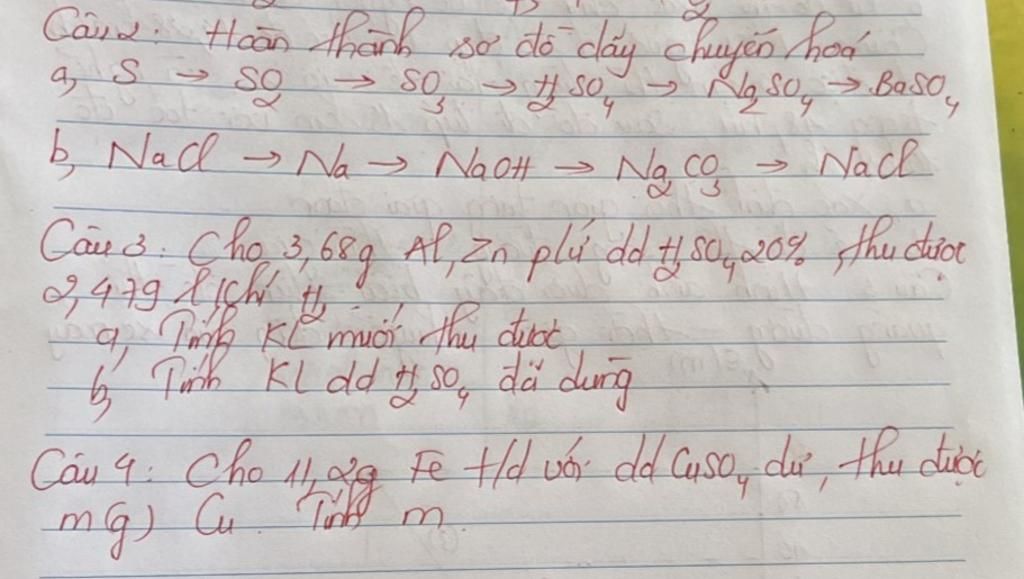 Câu 2: Hoàn thành sơ đồ dãy chuyển hoá
a, S → SO₂ → SO₃ → H₂SO₄ → Na₂SO₄ → BaSO₄
b, NaCl → Na → NaOH → Na₂CO₃ → NaCl
Câu 3: Cho 3,68g Al, Zn pứ dd H₂SO₄ 20%, thu được
2,479 l khí H₂
a, Tính KL muối thu được
b, Tính KL dd H₂SO₄ đã dùng
Câu 4: Cho 11,2g Fe t/d với dd CuSO₄ dư, thu được
m(g) Cu. Tính m.